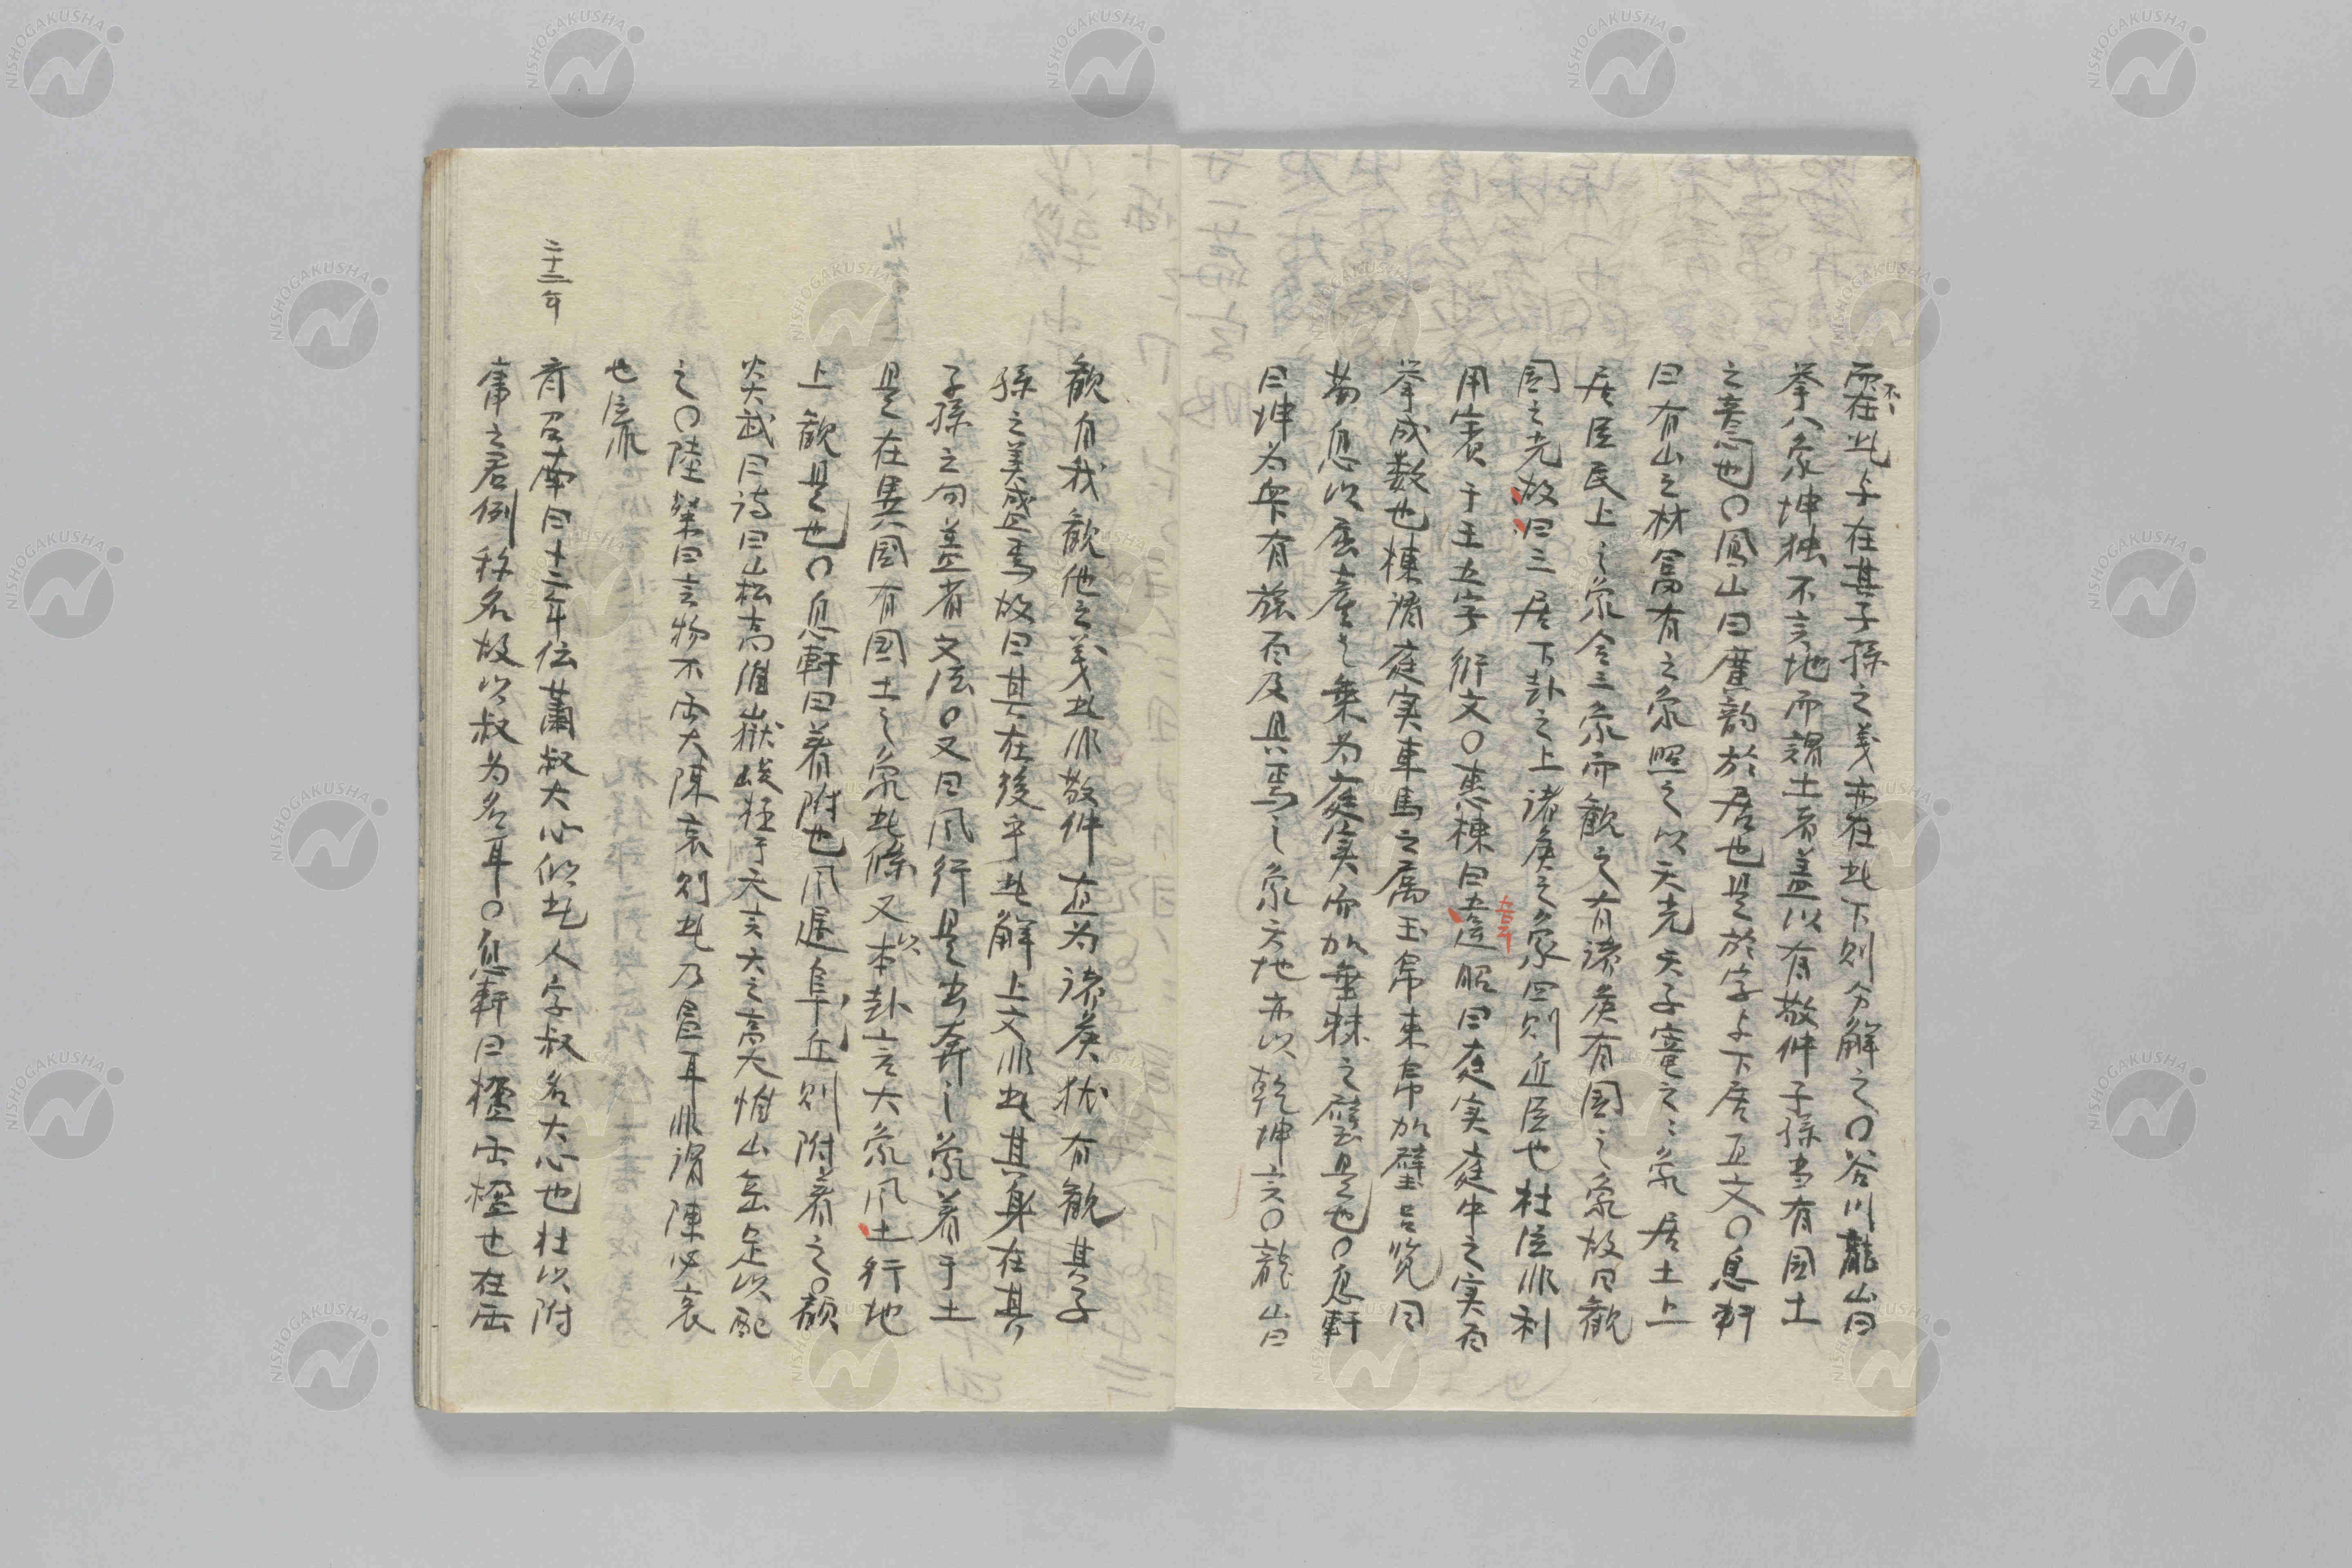 而不在此与在其子孫之義亦在此下則分解之〇谷川龍山曰
挙八象坤独不言地而謂土者蓋以有敬仲子孫当有国土
之意也〇鳳山曰 韵於居也是於字与下居互文〇息軒
曰有山之材富有之象照之以天光天子寵之〻象居土上
居臣民上之象合三象而観之有諸侯有国之象故曰観
国之光故曰三居下卦之上諸侯之象四則近臣也杜注非利
用賓于王五字衍文〇恵棟曰韋昭曰庭実庭中之実百
挙成数也棟謂庭実車馬之属玉帛束帛加璧呂覧曰
荀息以屈産之乗為庭実而加垂棘之璧是也〇息軒
曰坤為衆下有旅百及具焉之象天地亦以乾坤言〇龍山曰
観有我観他之義此非敬仲直為諸侯猶有観其子
孫之美盛焉故曰其在後乎此解上文非此其身在其
子孫之句蓋省文法〇又曰風行是出奔之象着于土
是在異国有国土之象此條又以本卦言大象風土行地
上観是也〇息軒曰着附也風遇阜丘則附着之〇顧
炎武曰詩曰山松高維嶽峻極于天言大之高大惟山岳足以配
之〇陸粲曰言物不両大陳衰則此乃昌耳非謂陳必衰
也
二十三年
斉召南曰十二年伝蕭叔大心似此人字叔名大心也杜以附
庸之君例称名故以叔為名耳〇息軒曰楹西楹也在西
NISHOGAKUSHA